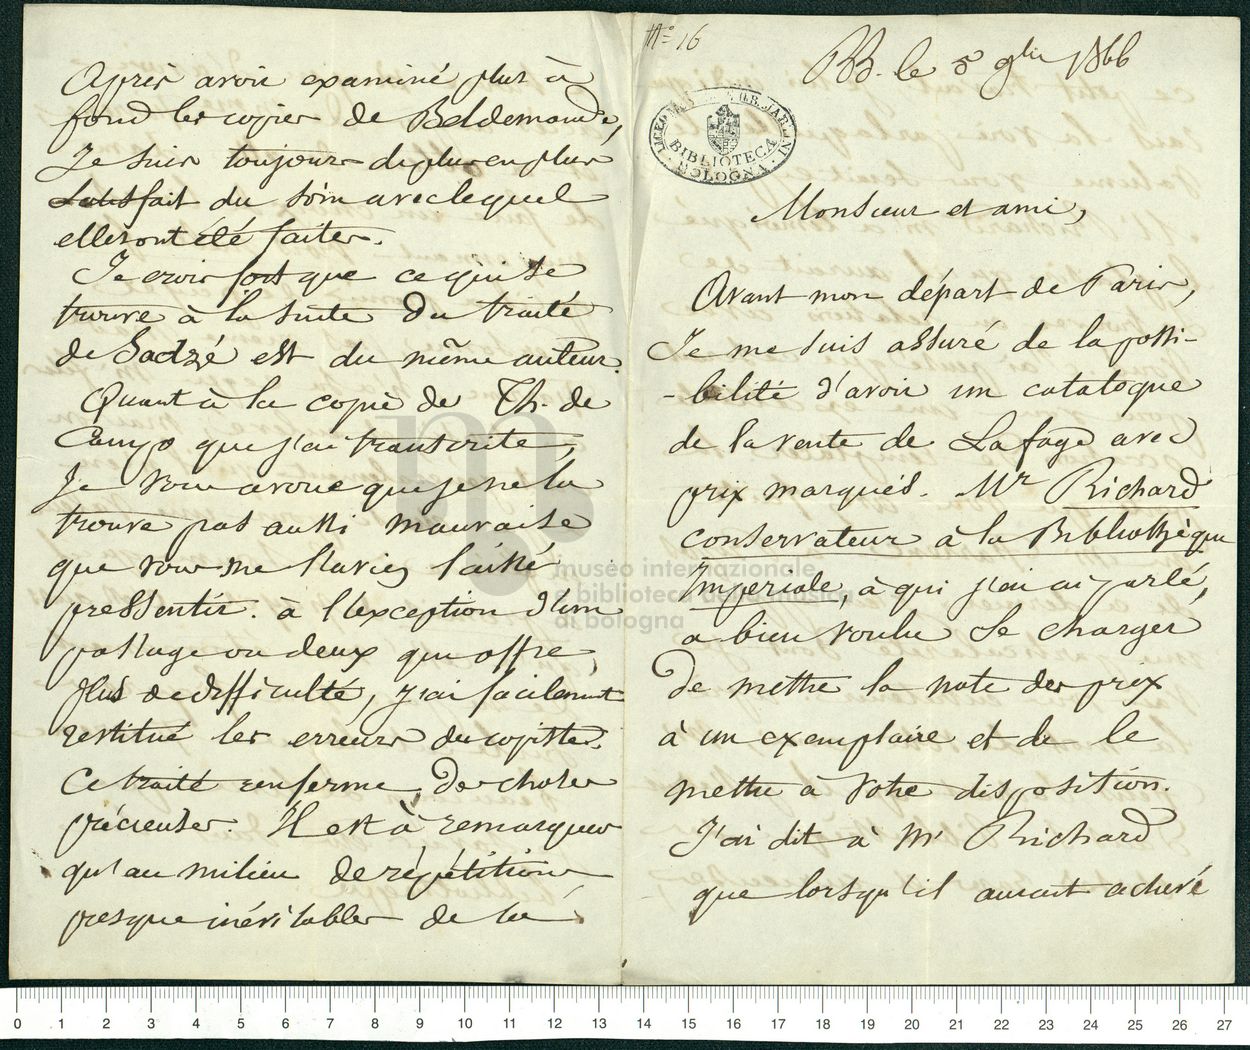 N° 16
le 5 9bre 1866
LICEO
BIBLIOTECA
BOLOGNA
Monsieur et ami,
Avant mon départ de Paris,
Je me suis assuré de la possi-
-bilité d'avoir un catalogue
de la vente de Lafage avec
prix marqués. Mr Richard
conservateur à la Bibliothèque
Impériale, à qui j'en ai parlé,
a bien voulu se charger
De mettre la note des prix
à un exemplaire et de le
mettre à votre disposition.
J'ai dit à Mr Richard
que lorsqu'il aurait achevé
Après avoir examiné plus à
fond les copies de Beldemando,
Je suis toujours de plus en plus
satisfait du soin avec lequel
elles ont été faites.
Je crois fort que ce qui se
trouve à la suite du traité
de Sadzé est du même auteur.
Quant à la copie de Th. de
Campo que j'ai transcrite,
Je vous avoue que je ne la
trouve pas aussi mauvaise
que vous me l'aviez laissé
pressentir. à l'exception d'un
passage ou deux qui offre
plus de difficulté, j'ai facilement
restitué les erreurs du copiste.
Ce traité renferme des choses
précieuses. Il est à remarquer
qu'au milieu de répétitions
presque inévitables de la
museo internazionale
e biblioteca della musica
di bologna
0 1 2 3 4 5 6 7 8 9 10 11 12 13 14 15 16 17 18 19 20 21 22 23 24 25 26 27